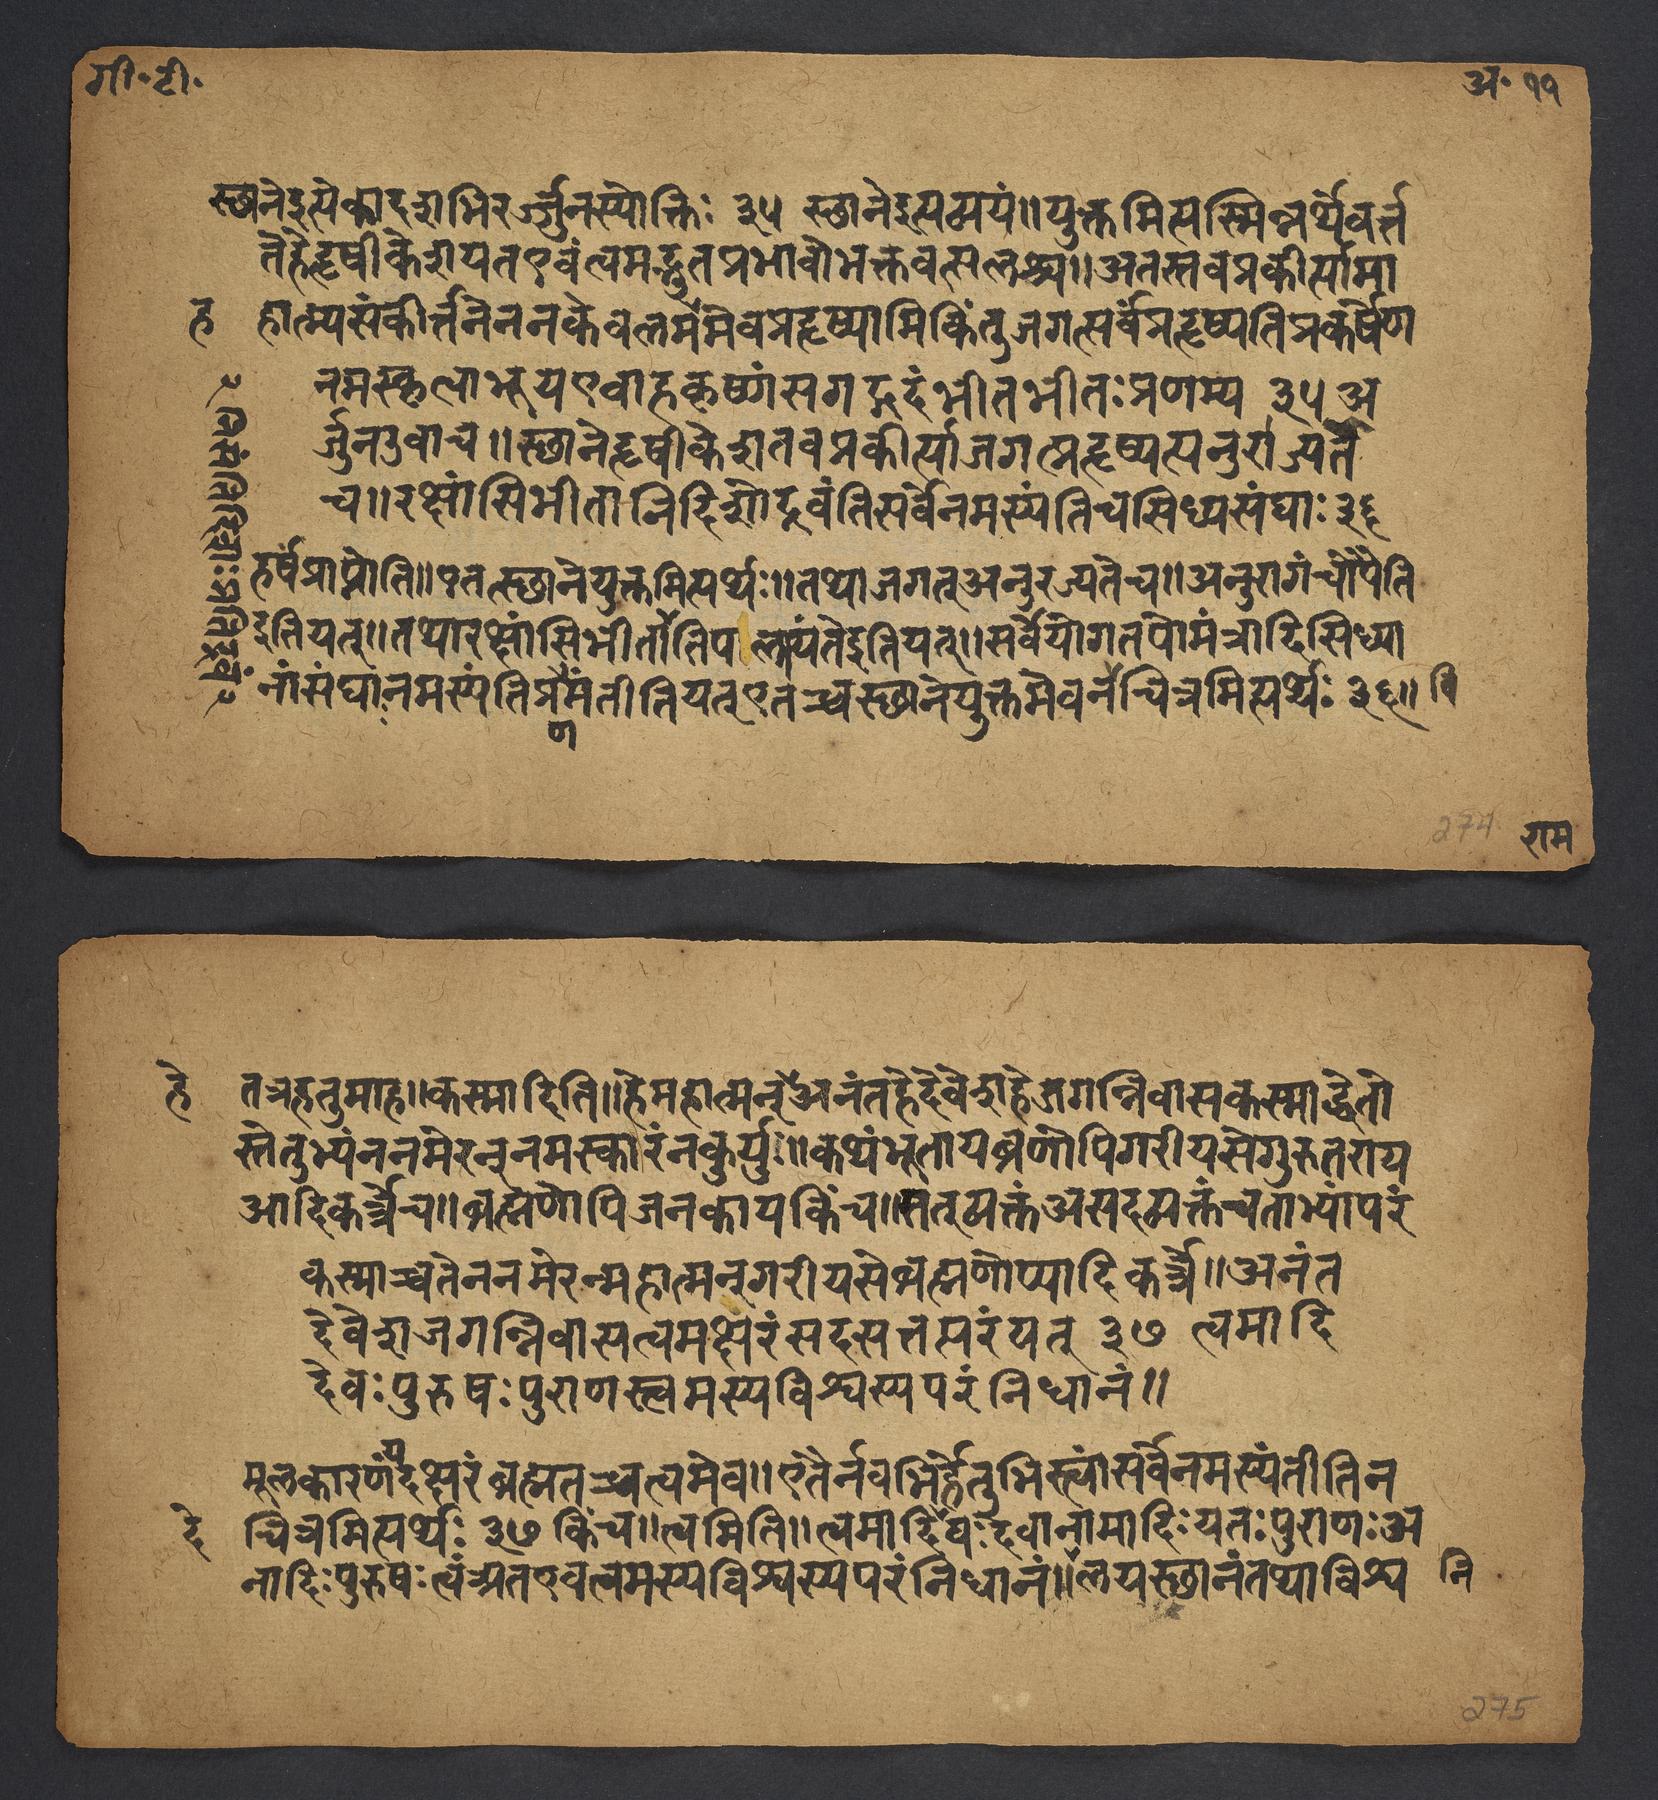 गी॰ टी॰
अ॰ ११
स्छानेइत्येकादशभिरर्ज्जुनस्योक्तिः ३५ स्छानेइत्यव्ययं॥युक्तमित्यस्मिन्नर्थेवर्त्त
तेहेहृषीकेशयतएवंत्वमद्भुतप्रभावोभक्तवत्सलश्च॥अतस्तवप्रकीर्त्यामा
ह
हात्म्यसंकीर्त्तनेननकेवलमहमेवप्रहृष्यामिकिंतुजगत्सर्वंप्रहृष्यतिप्रकर्षेण
नमस्कृत्वाभूयएवाहकृष्णंसगद्गदंभीतभीतःप्रणम्य ३५ अ
र्जुनउवाच॥स्छानेहृषीकेशतवप्रकीर्त्याजगत्प्रहृष्यत्यनुरज्यते
च॥रक्षांसिभीतानिदिशोद्रवंतिसर्वेनमस्यंतिचसिध्यसंघाः ३६
हर्षंप्राप्नोति॥एतत्स्छानेयुक्तमित्यर्थः॥तथाजगत्अनुरज्यतेच॥अनुरागंचोपैति
इतियत्॥तथारक्षांसिभीतानिपलायंतेइतियत्॥सर्वेयोगतपोमंत्रादिसिध्या
नांसंघानमस्यंतिप्रमंतीतियत्एतच्चस्छानेयुक्तमेवनचित्रमित्यर्थः ३६॥
वि
ण
राम
274
हे
तत्रहेतुमाह॥कस्मादिति॥हेमहात्मन्अनंतहेदेवेशहेजगन्निवासकस्माद्धेतो
स्तेतुभ्यंननमेरन्नमस्कारंनकुर्युः॥कथंभूतायब्रणोपिगरीयसेगुरुतराय
आदिकर्त्रेच॥ब्रह्मणोपिजनकायकिंच॥सत्व्यक्तंअसदव्यक्तंचताभ्यांपरं
कस्माच्चतेननमेरन्महात्मन्गरीयसेब्रह्मणोप्यादिकर्त्रे॥अनंत
देवेशजगन्निवासत्वमक्षरंसदसत्तत्परंयत् ३७ त्वमादि
देवःपुरुषःपुराणस्त्वमस्यविश्वस्यपरंनिधानं॥
मूलकारणंयदक्षरंब्रह्मतच्चत्वमेव॥एतैर्नवभिर्हेतुभिस्त्वांसर्वेनमस्यंतीतिन
दे
चित्रमित्यर्थः ३७ किंच॥त्वमिति॥त्वमादिवःदेवानामादिःयतःपुराणःअ
नादिःपुरुषःत्वंअतएवत्वमस्यविश्वस्यपरंनिधानं॥लयस्छानंतथाविश्व
नि
275